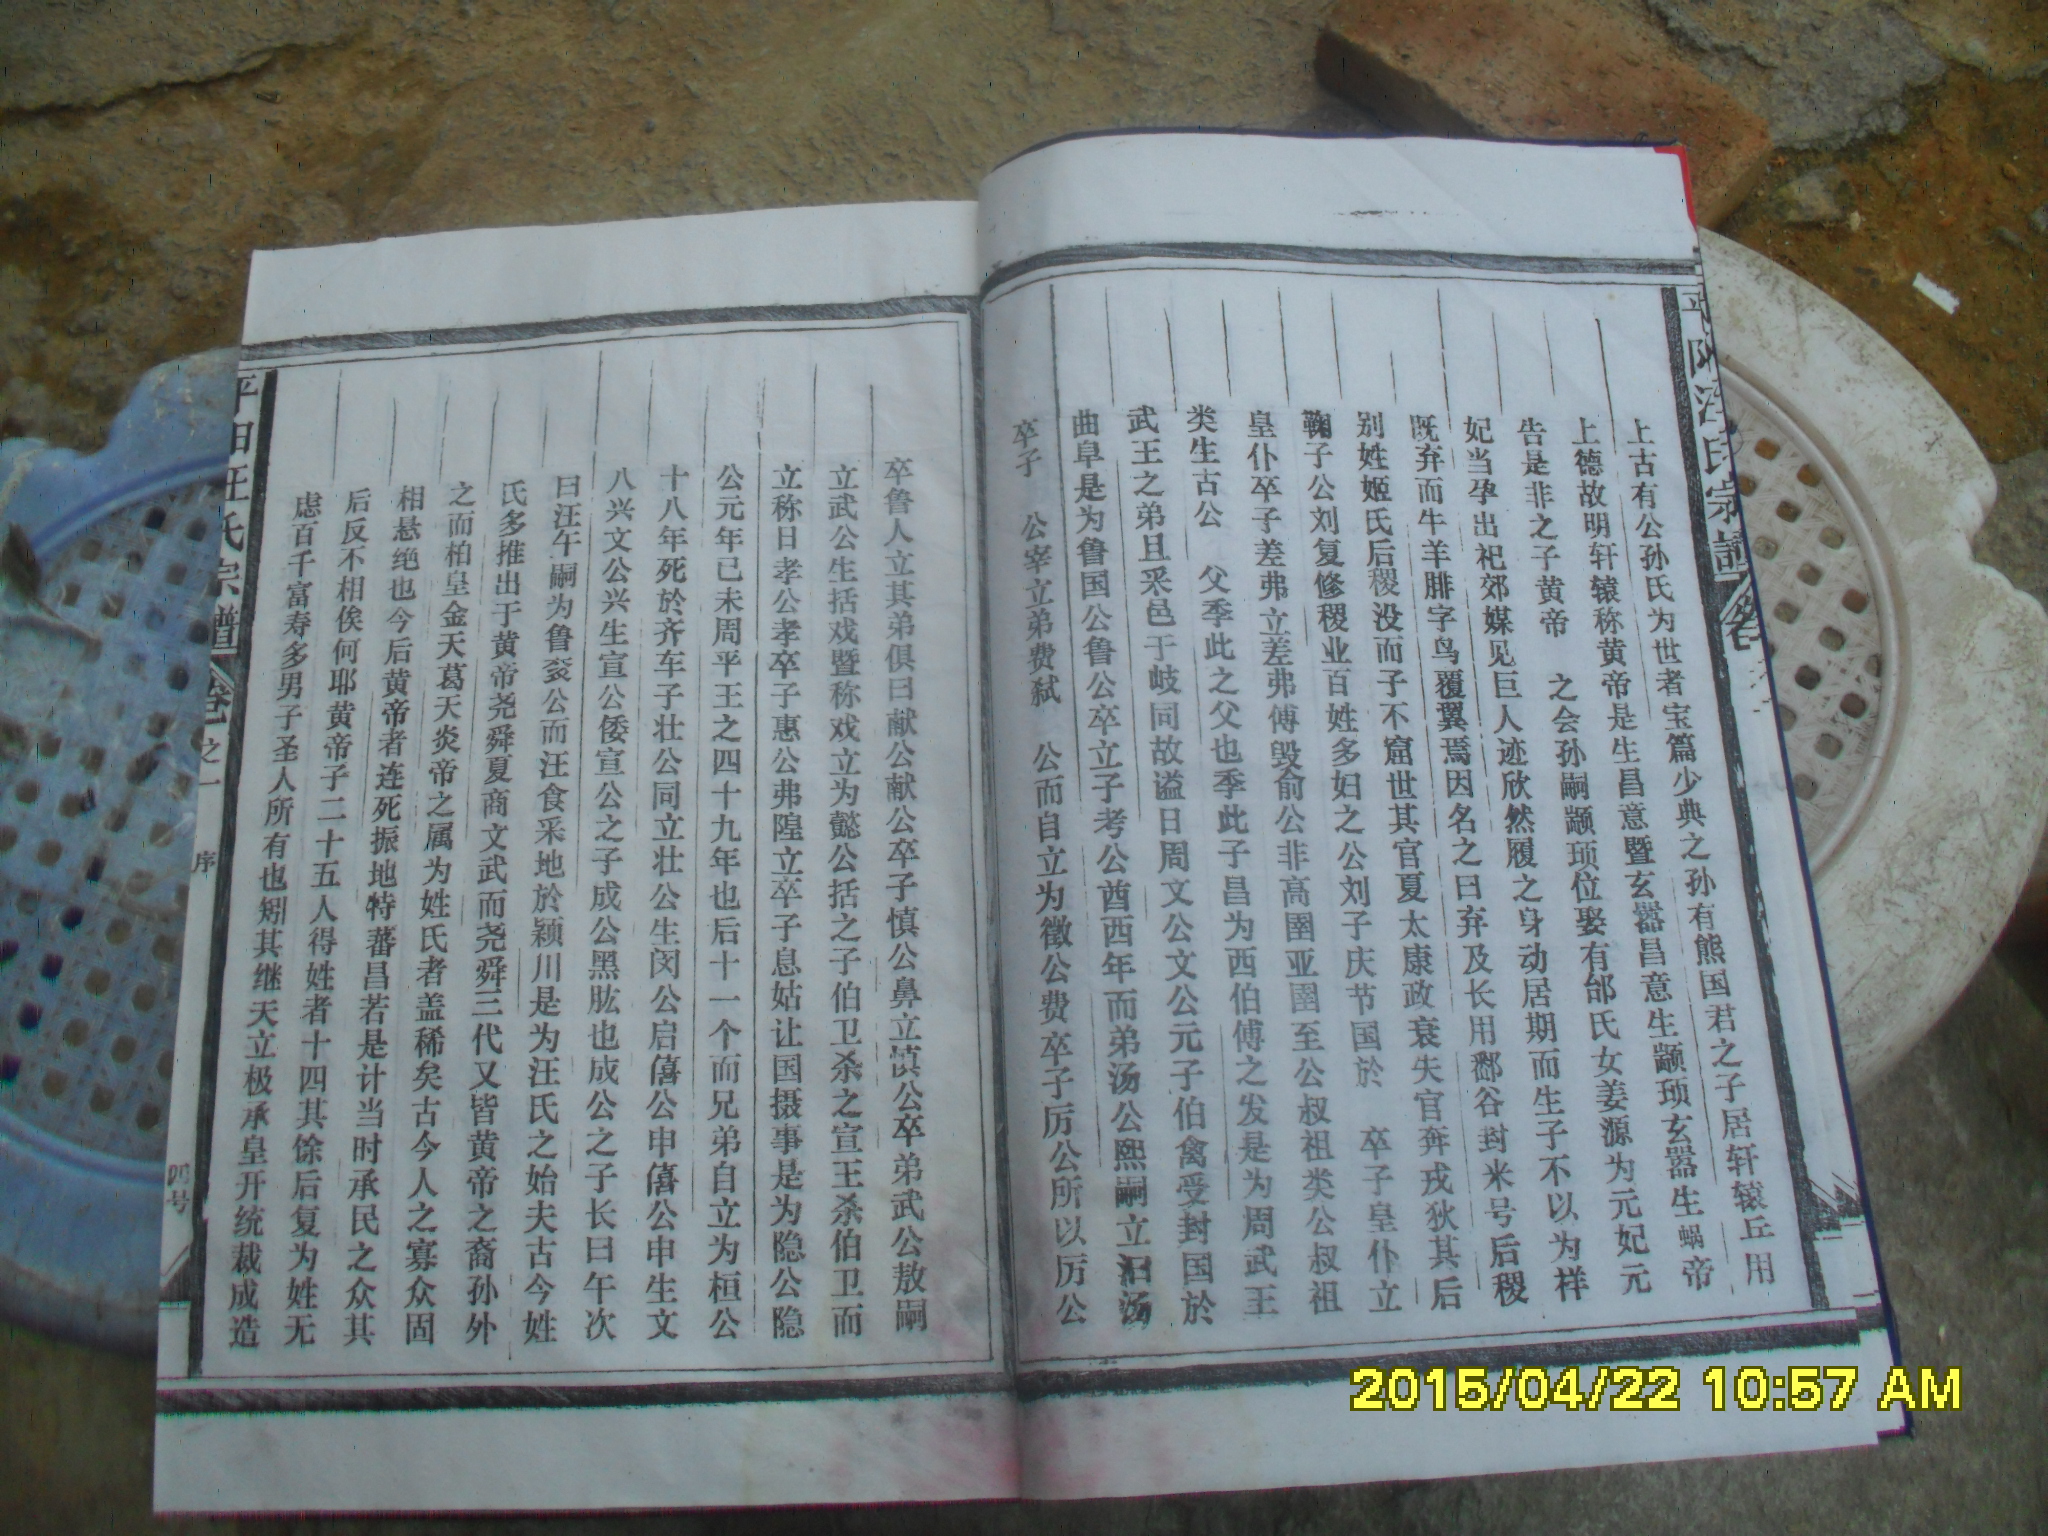 上古有公孙氏为世者宝篇少典之孙有熊国君之子居轩辕丘用
上德故明轩辕称黄帝是生昌意暨玄嚣昌意生颛顼玄嚣生蜎帝
告是非之子黄帝 之会孙嗣颛顼位娶有邰氏女姜源为元妃元
妃当孕出祀郊媒见巨人迹欣然履之身动居期而生子不以为样
既弃而牛羊腓字鸟覆翼焉因名之曰弃及长用鄱谷封米号后稷
别姓姬氏后稷没而子不窋世其官夏太康政衰失官奔戎狄其后
鞠子公刘复修稷业百姓多妇之公刘子庆节国於 卒子皇仆立
皇仆卒子差弗立差弗傅毁俞公非高圉亚圉至公叔祖类公叔祖
类生古公 父季此之父也季此子昌为西伯傅之发是为周武王
武王之弟旦采邑于岐同故谥曰周文公文公元子伯禽受封国於
曲阜是为鲁国公鲁公卒立子考公酋西年而弟汤公熙嗣立汤
卒子 公宰立弟费弑 公而自立为徵公费卒子厉公所以厉公
卒鲁人立其弟俱曰献公献公卒子慎公鼻立慎公卒弟武公敖嗣
立武公生括戏暨称戏立为懿公括之子伯卫杀之宣王杀伯卫而
立称曰孝公孝卒子惠公弗隍立卒子息姑让国摄事是为隐公隐
公元年已未周平王之四十九年也后十一个而兄弟自立为桓公
十八年死於齐车子壮公同立壮公生闵公启僖公申僖公申生文
八兴文公兴生宣公倭宣公之子成公黑肱也成公之子长曰午次
曰汪午嗣为鲁衮公而汪食采地於颖川是为汪氏之始夫古今姓
氏多推出于黄帝尧舜夏商文武而尧舜三代又皆黄帝之裔孙外
之而柏皇金天葛天炎帝之属为姓氏者盖稀矣古今人之寡众固
相悬绝也今后黄帝者连死振地特蕃昌若是计当时承民之众其
后反不相俟何耶黄帝子二十五人得姓者十四其馀后复为姓无
虑百千富寿多男子圣人所有也矧其继天立极承皇开统裁成造
平阳汪氏宗谱
卷之一
序
四号
2015/04/22 10:57 AM